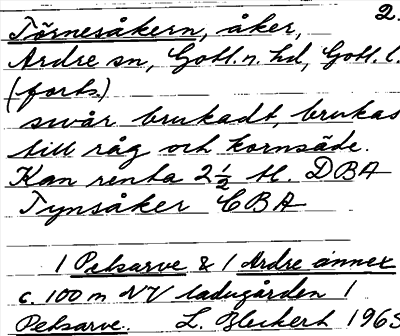 2.
Törnesåkern, åker,
Ardre sn, Gotl. n. hd, Gotl. l.
(forts)
svår brukadt, brukas
till råg och kornsäde.
Kan renta 2½ tt. DBA
Tynsåker CBA
1 Petsarve & 1 Ardre annex
c. 100 m NV ladugården 1
Petsarve. L. Bleckert 1965